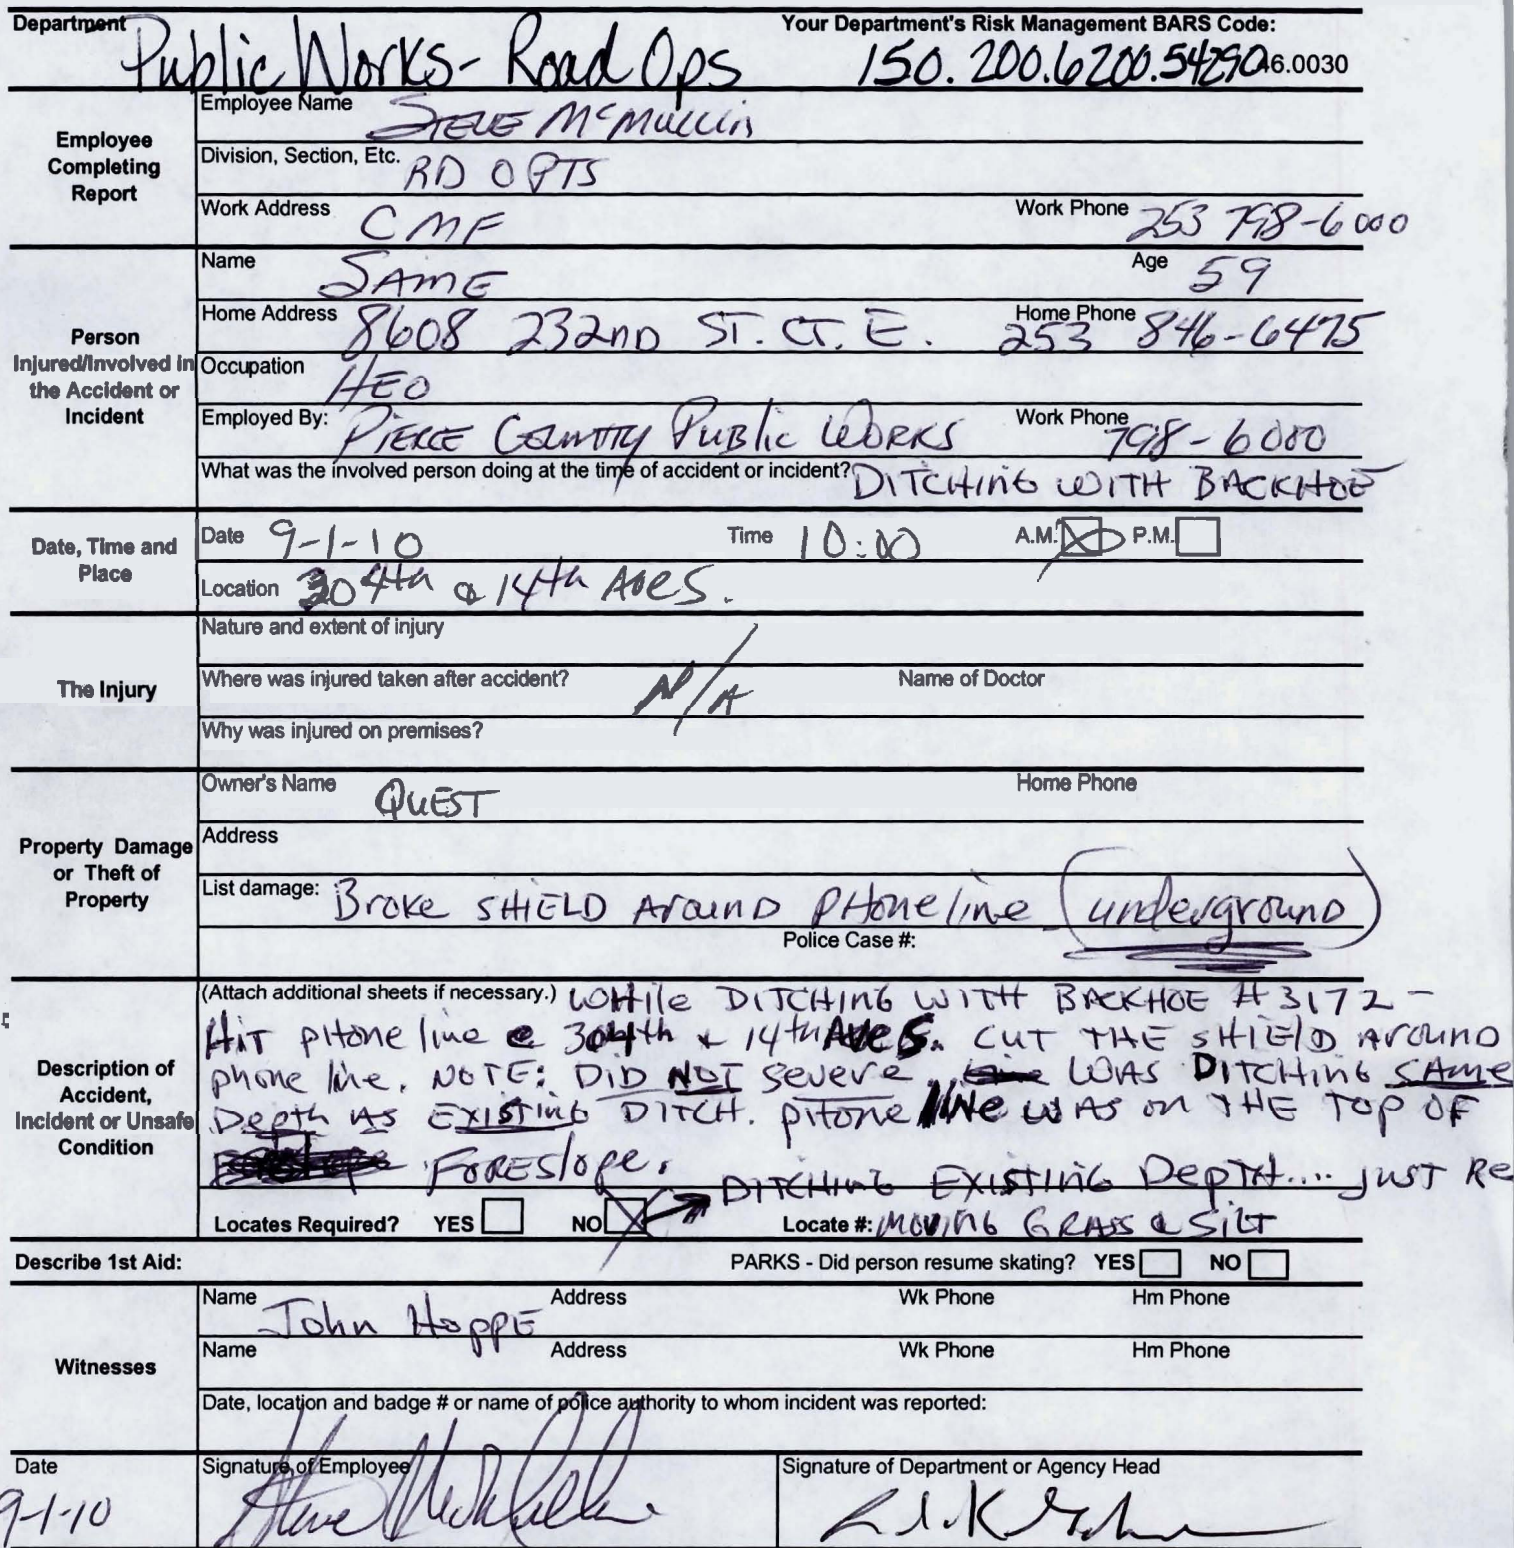 Department Your Department's Risk Management BARS Code:
Public Works- Road Ops 150.200.6200.54290 46.0030
Employee Completing Report
Employee Name STEVE McMULLIN
Division, Section, Etc. RD OPTS
Work Address CMF Work Phone 253 798-6000
Person Injured/Involved in the Accident or Incident
Name SAME Age 59
Home Address 8608 232ND ST. CT. E. Home Phone 253 846-6475
Occupation HEO
Employed By: PIERCE COUNTY PUBLIC WORKS Work Phone 798-6000
What was the involved person doing at the time of accident or incident? DITCHING WITH BACKHOE
Date, Time and Place
Date 9-1-10 Time 10:00 A.M. P.M.
Location 304th @ 14th Ave S.
The Injury
Nature and extent of injury
Where was injured taken after accident? N/A Name of Doctor
Why was injured on premises?
Property Damage or Theft of Property
Owner's Name QUEST Home Phone
Address
List damage: Broke SHIELD Around PHone line (underground)
Police Case #:
Description of Accident, Incident or Unsafe Condition
(Attach additional sheets if necessary.) WHile DITCHING WITH BACKHOE #3172 -
HIT pHone line @ 304th & 14th Ave S. CUT THE SHIElD Around
phone line. NOTE: DID NOT severe. WAS DITCHING SAME
Depth AS EXISTING DITCH. pHone line WAS on THE TOP OF
FORESlope.
DITCHING EXISTING DepTH.... JUST RE
Locates Required? YES NO Locate #: MOVING GRASS & SILT
Describe 1st Aid: PARKS - Did person resume skating? YES NO
Witnesses
Name John HoppE Address Wk Phone Hm Phone
Name Address Wk Phone Hm Phone
Date, location and badge # or name of police authority to whom incident was reported:
Date Signature of Employee Signature of Department or Agency Head
9-1-10 Steve McMullin